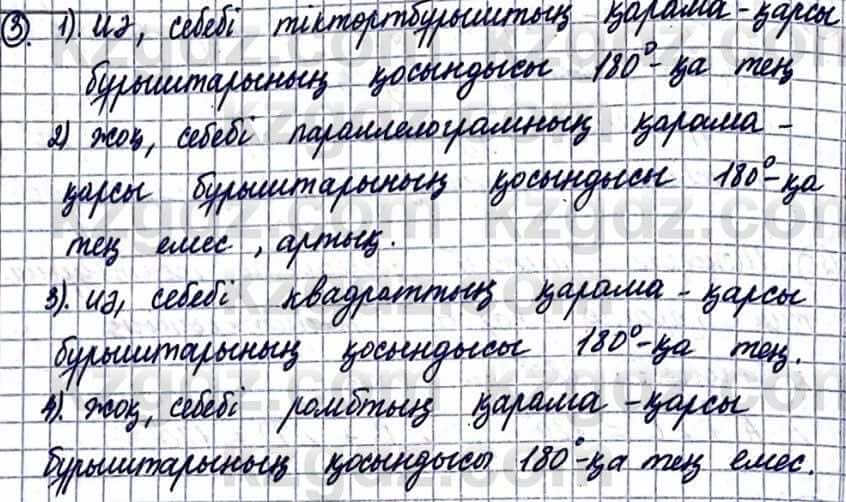 3. 1). иә, себебі тіктөртбұрыштың қарама-қарсы
бұрыштарының қосындысы 180°-қа тең
2) жоқ, себебі параллелограмның қарама-
қарсы бұрыштарының қосындысы 180°-қа
тең емес, артық.
3). иә, себебі квадраттың қарама-қарсы
бұрыштарының қосындысы 180°-қа тең.
4). жоқ, себебі ромбтың қарама-қарсы
бұрыштарының қосындысы 180°-қа тең емес.